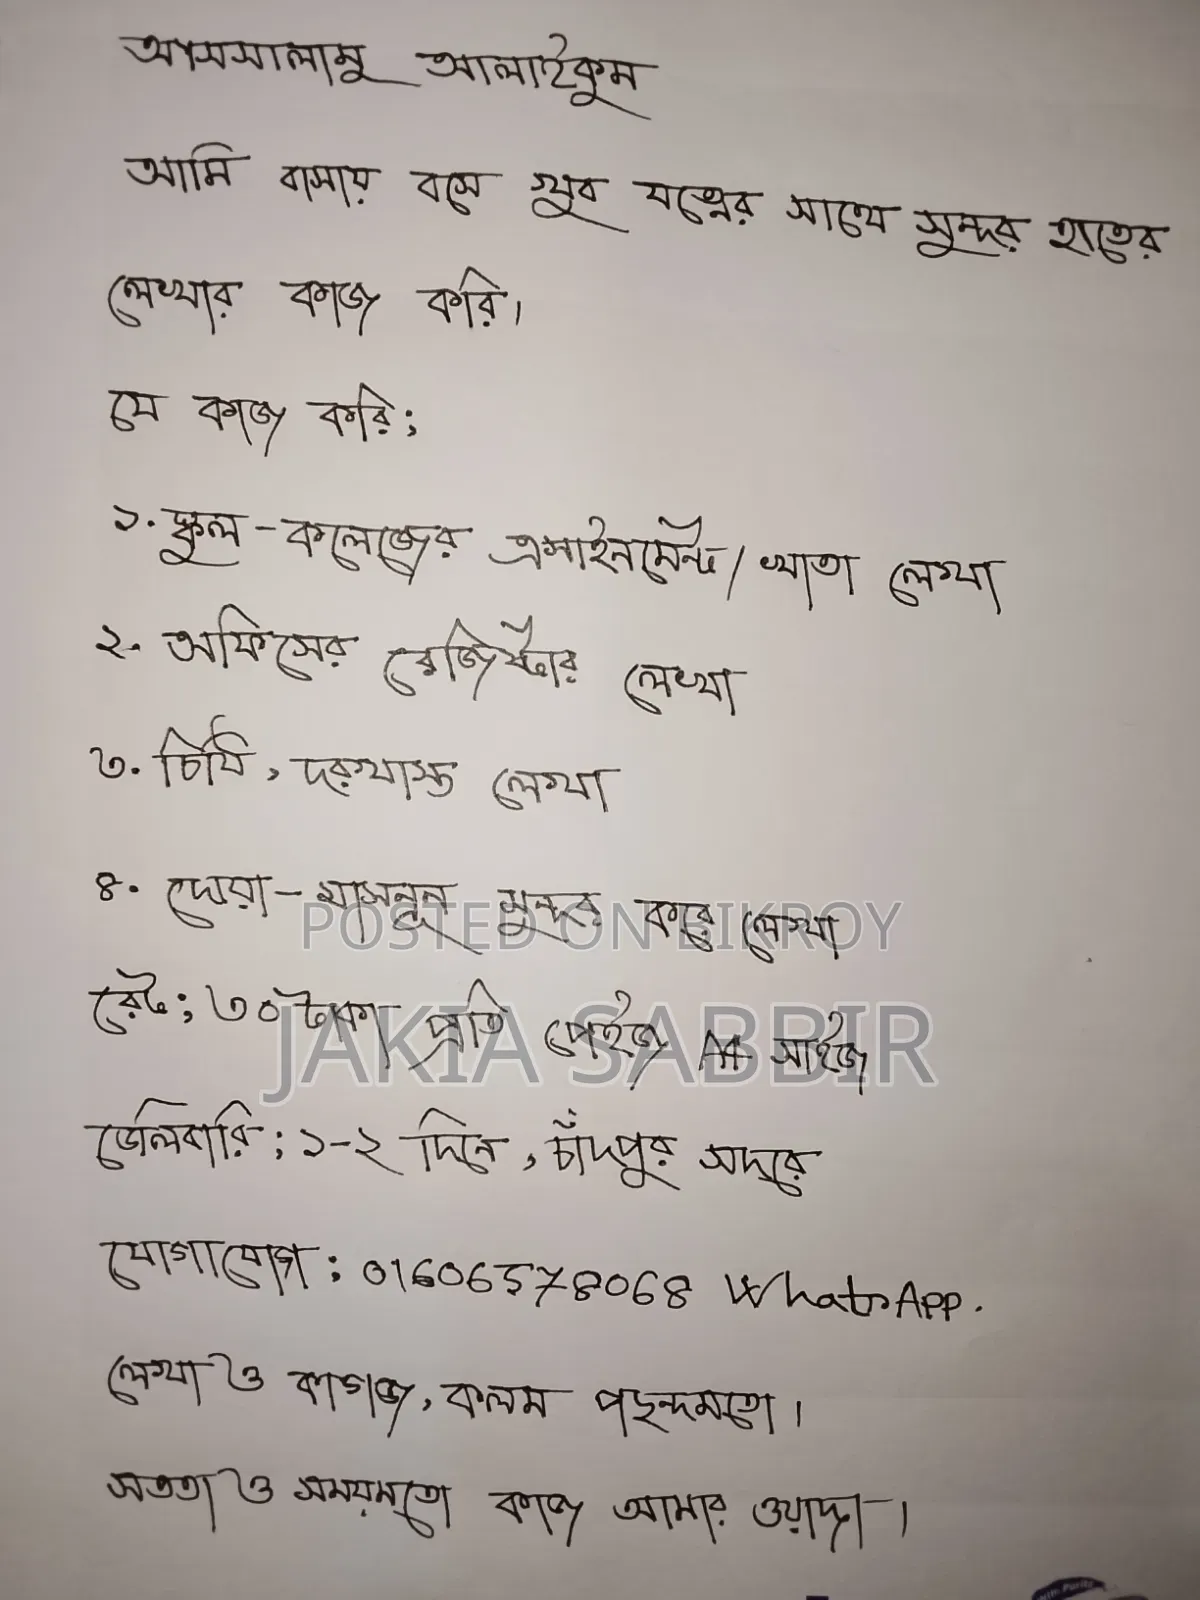 আসসালামু আলাইকুম
আমি বাসায় বসে খুব যত্নের সাথে সুন্দর হাতের
লেখার কাজ করি।
যে কাজ করি;
১. স্কুল - কলেজের এসাইনমেন্ট / খাতা লেখা
২. অফিসের রেজিস্টার লেখা
৩. চিঠি, দরখাস্ত লেখা
৪. দোয়া - মাসনূন সুন্দর করে লেখা
POSTED ON BIKROY
রেট; ৩০ টাকা প্রতি পেইজ A4 সাইজ
JAKIA SABBIR
ডেলিবারি; ১-২ দিনে, চাঁদপুর সদরে
যোগাযোগ; 01606578068 WhatsApp.
লেখা ও কাগজ, কলম পছন্দমতো।
সততা ও সময়মতো কাজ আমার ওয়াদা।